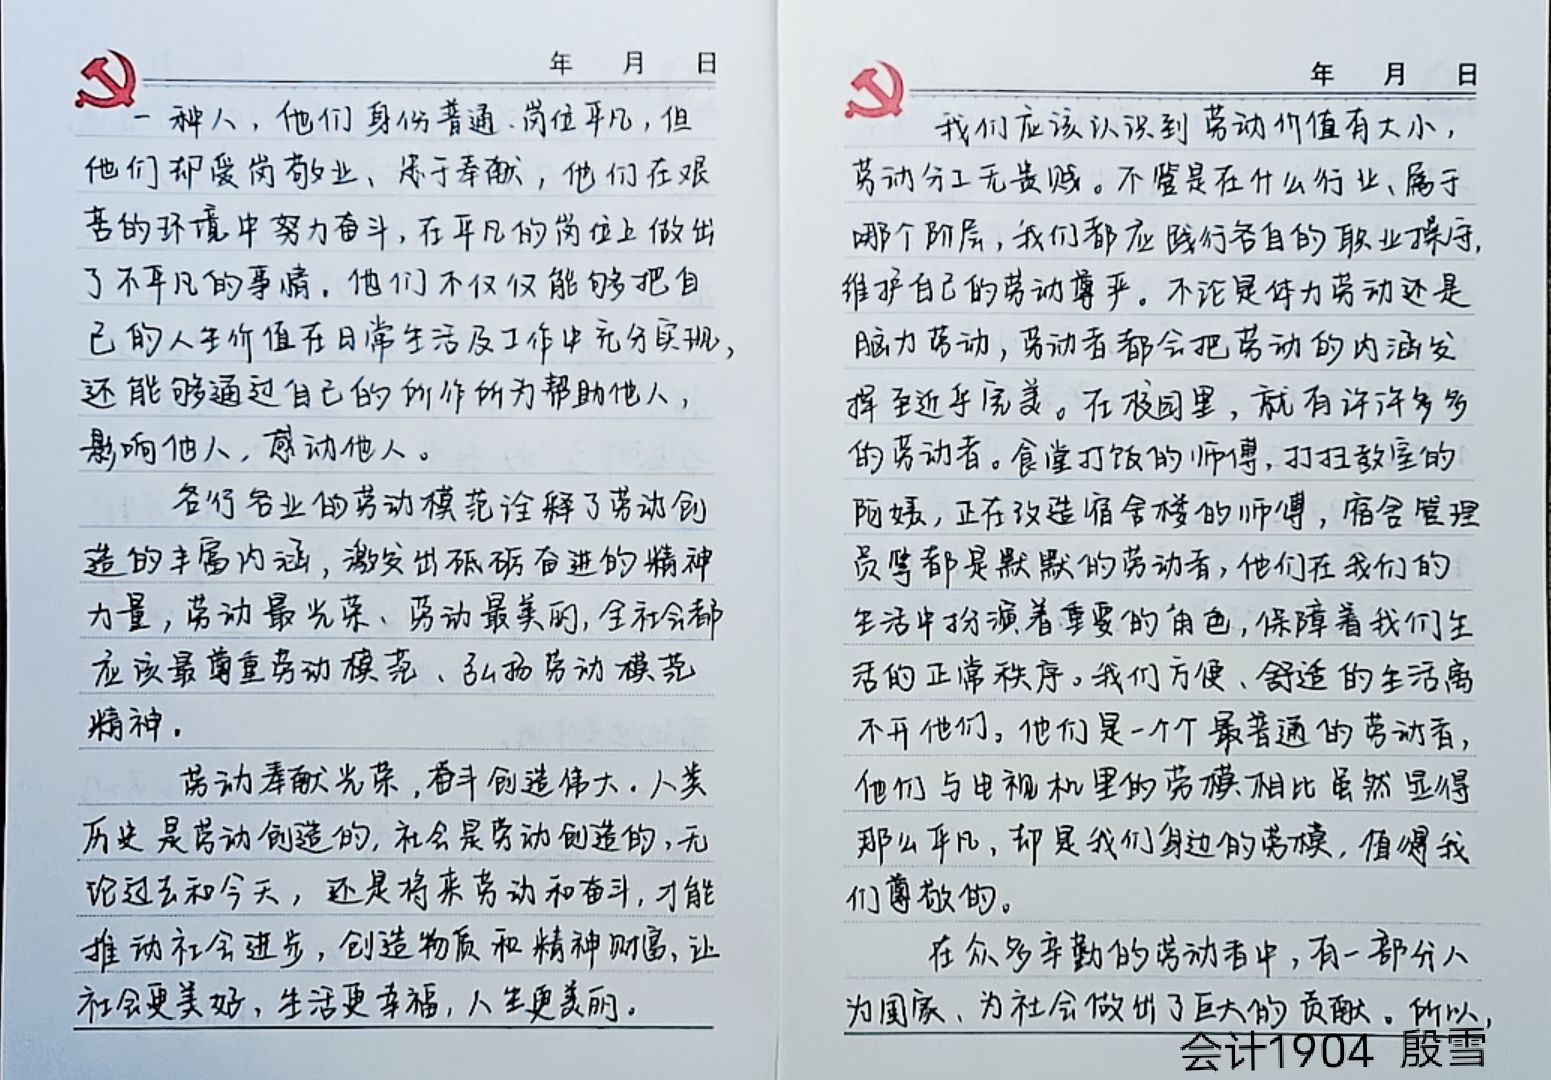 年 月 日
一种人，他们身份普通、岗位平凡，但
他们却爱岗敬业、忠于奉献，他们在艰
苦的环境中努力奋斗，在平凡的岗位上做出
了不平凡的事情。他们不仅仅能够把自
己的人生价值在日常生活及工作中充分实现，
还能够通过自己的所作所为帮助他人，
影响他人，感动他人。
各行各业的劳动模范诠释了劳动创
造的丰富内涵，激发出砥砺奋进的精神
力量，劳动最光荣、劳动最美丽，全社会都
应该最尊重劳动模范、弘扬劳动模范
精神。
劳动奉献光荣，奋斗创造伟大。人类
历史是劳动创造的，社会是劳动创造的，无
论过去和今天，还是将来劳动和奋斗，才能
推动社会进步，创造物质和精神财富，让
社会更美好，生活更幸福，人生更美丽。
年 月 日
我们应该认识到劳动价值有大小，
劳动分工无贵贱。不管是在什么行业、属于
哪个阶层，我们都应践行各自的职业操守，
维护自己的劳动尊严。不论是体力劳动还是
脑力劳动，劳动者都会把劳动的内涵发
挥至近乎完美。在校园里，就有许许多多
的劳动者。食堂打饭的师傅，打扫教室的
阿姨，正在改造宿舍楼的师傅，宿舍管理
员等都是默默的劳动者，他们在我们的
生活中扮演着重要的角色，保障着我们生
活的正常秩序。我们方便、舒适的生活离
不开他们。他们是一个个最普通的劳动者，
他们与电视机里的劳模相比虽然显得
那么平凡，却是我们身边的劳模，值得我
们尊敬的。
在众多辛勤的劳动者中，有一部分人
为国家、为社会做出了巨大的贡献。所以，
会计1904 殷雪